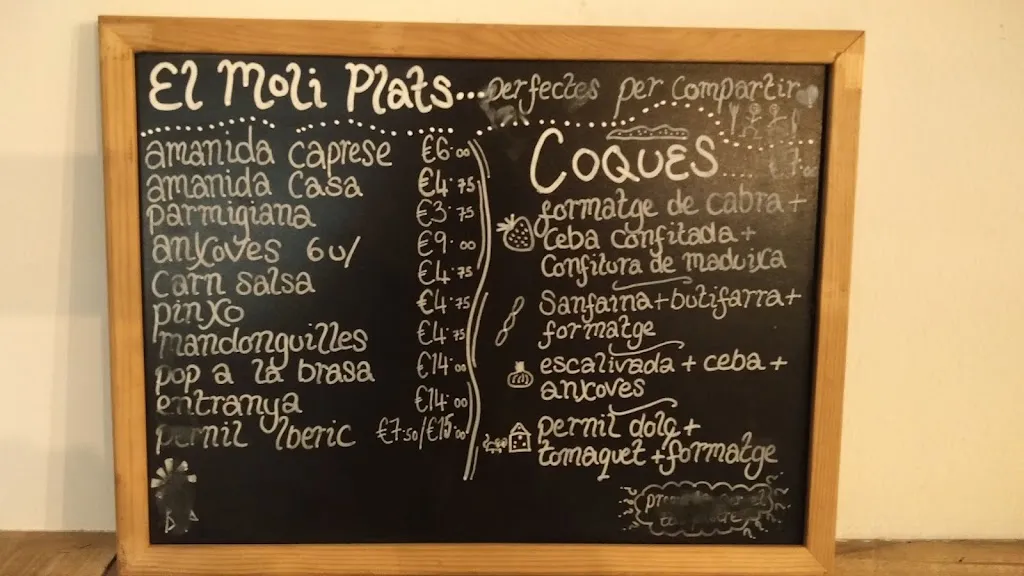 El Moli Plats... perfectes per compartir
amanida caprese €6.00
amanida casa €4.75
parmigiana €3.75
anxoves 6u/ €9.00
carn salsa €4.75
pinxo €4.75
mandonguilles €4.75
pop a la brasa €14.00
entranya €14.00
pernil Iberic €7.50/€15.00
COQUES
formatge de cabra +
ceba confitada +
confitura de maduixa
Sanfaina + butifarra +
formatge
escalivada + ceba +
anxoves
pernil dolç +
tomaquet + formatge